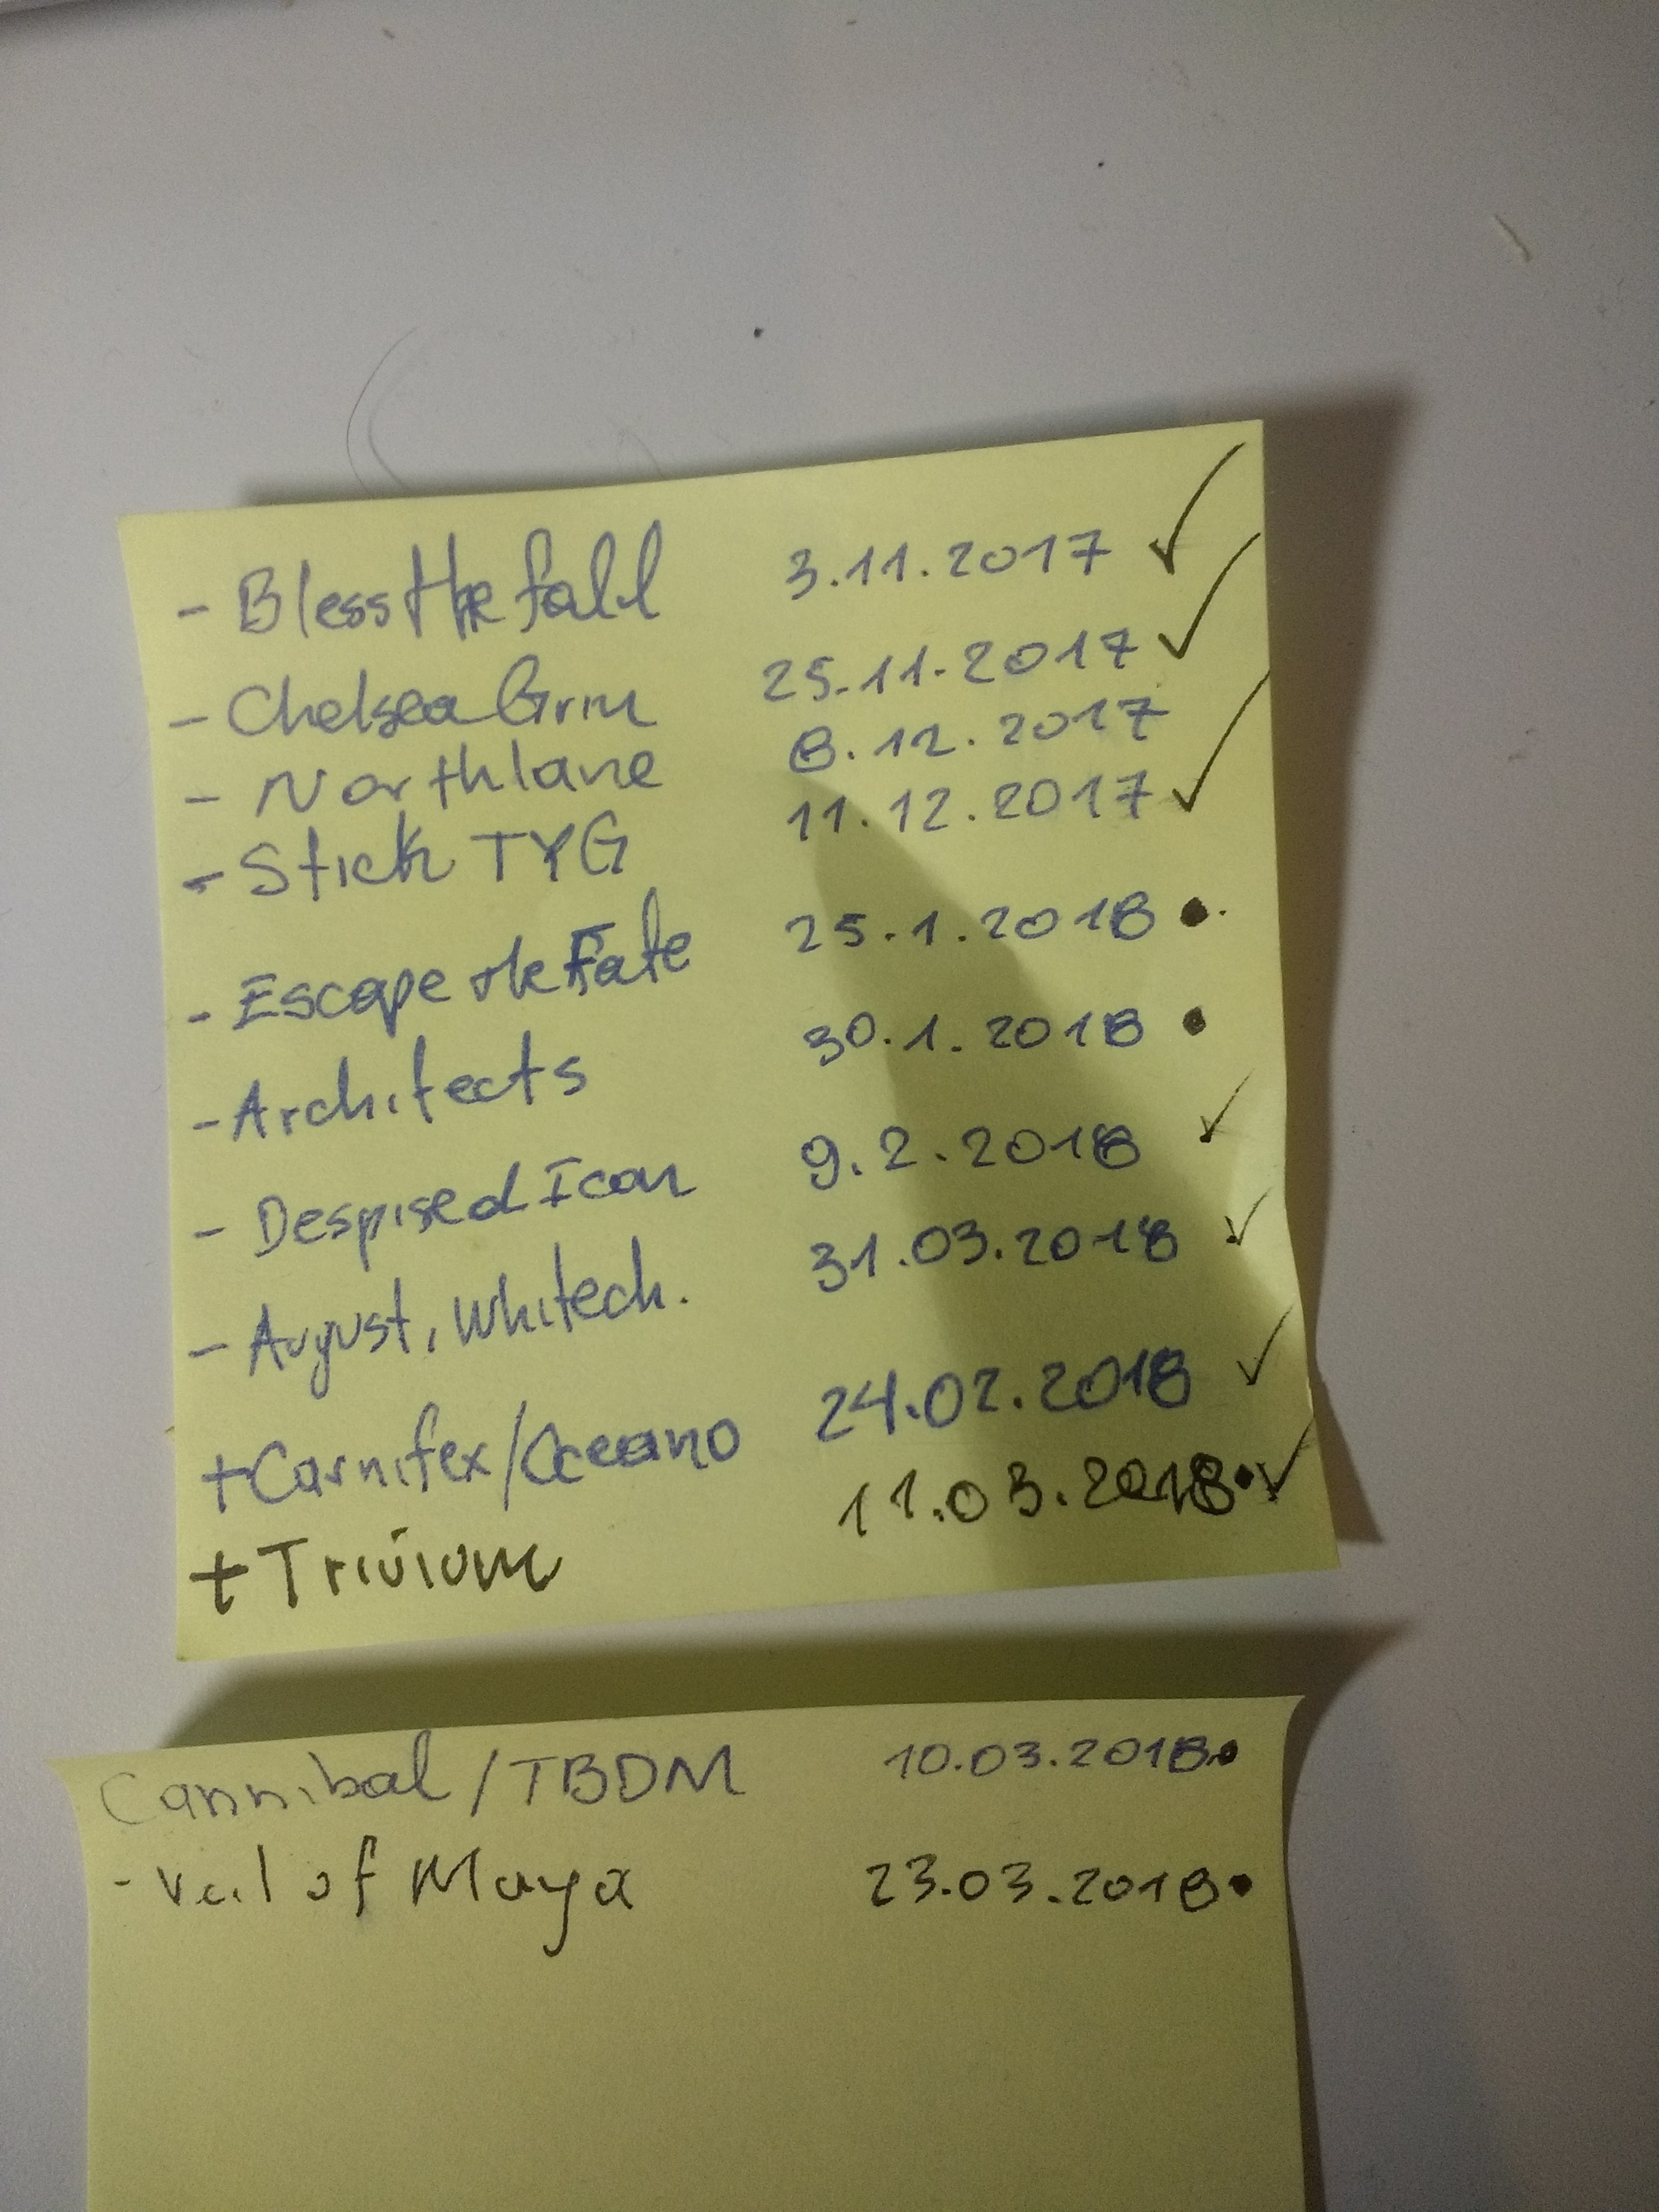 - Blessthefall 3.11.2017 ✓
- Chelsea Grin 25.11.2017 ✓
- Northlane 8.12.2017
- Stick TYG 11.12.2017 ✓
- Escape the Fate 25.1.2018 •
- Architects 30.1.2018 •
- Despised Icon 9.2.2018 ✓
- August, Whitech. 31.03.2018 ✓
+ Carnifex/Oceano 24.02.2018 ✓
+ Trivium 11.03.2018 • ✓
Cannibal/TBDM 10.03.2018 •
- Veil of Maya 23.03.2018 •